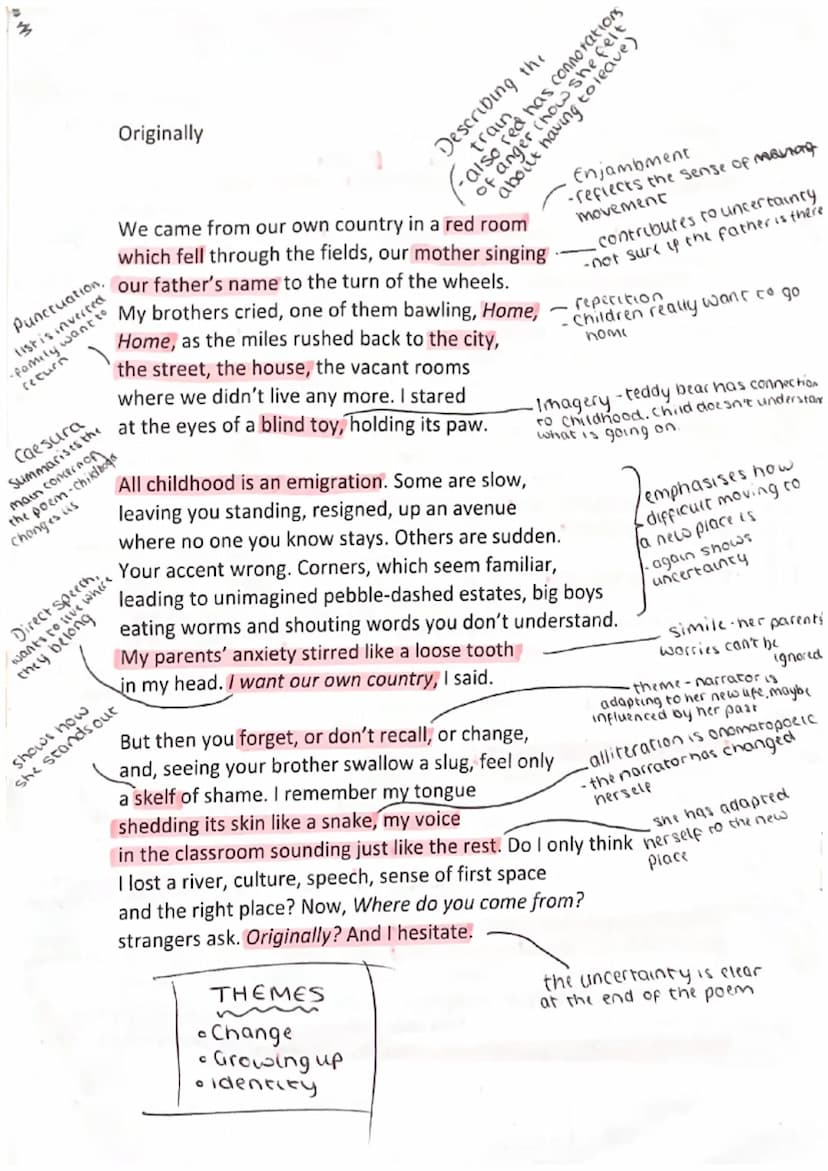 Originally
Describing the
train
-also red has connotations
of anger (how she felt
about having to leave)
Enjambment
-reflects the sense of
movement
contributes to uncertainty
-not sure if the father is there
We came from our own country in a red room
which fell through the fields, our mother singing
our father's name to the turn of the wheels.
My brothers cried, one of them bawling, Home,
Home, as the miles rushed back to the city,
the street, the house, the vacant rooms
where we didn't live any more. I stared
at the eyes of a blind toy, holding its paw.
Punctuation.
list is inverted
-family want to
return
repetition
- Children really want to go
home
Imagery - teddy bear has connection
to childhood. Child doesn't understan
what is going on.
Caesura
Summarises the
main concern on
the poem - childhood
changes us
All childhood is an emigration. Some are slow,
leaving you standing, resigned, up an avenue
where no one you know stays. Others are sudden.
Your accent wrong. Corners, which seem familiar,
leading to unimagined pebble-dashed estates, big boys
eating worms and shouting words you don't understand.
My parents' anxiety stirred like a loose tooth
in my head. I want our own country, I said.
emphasises how
difficult moving to
a new place is
- again shows
uncertainty
Direct speech,
wants to live where
they belong
simile - her parents
worries can't be
ignored
theme - narrator is
adapting to her new life, maybe
influenced by her past
But then you forget, or don't recall, or change,
and, seeing your brother swallow a slug, feel only
a skelf of shame. I remember my tongue
shedding its skin like a snake, my voice
in the classroom sounding just like the rest. Do I only think
I lost a river, culture, speech, sense of first space
and the right place? Now, Where do you come from?
strangers ask. Originally? And I hesitate.
shows how
she stands out
alliteration is onomatopoeic
- the narrator has changed
herself
she has adapted
herself to the new
place
the uncertainty is clear
at the end of the poem
THEMES
• Change
• Growing up
• identity